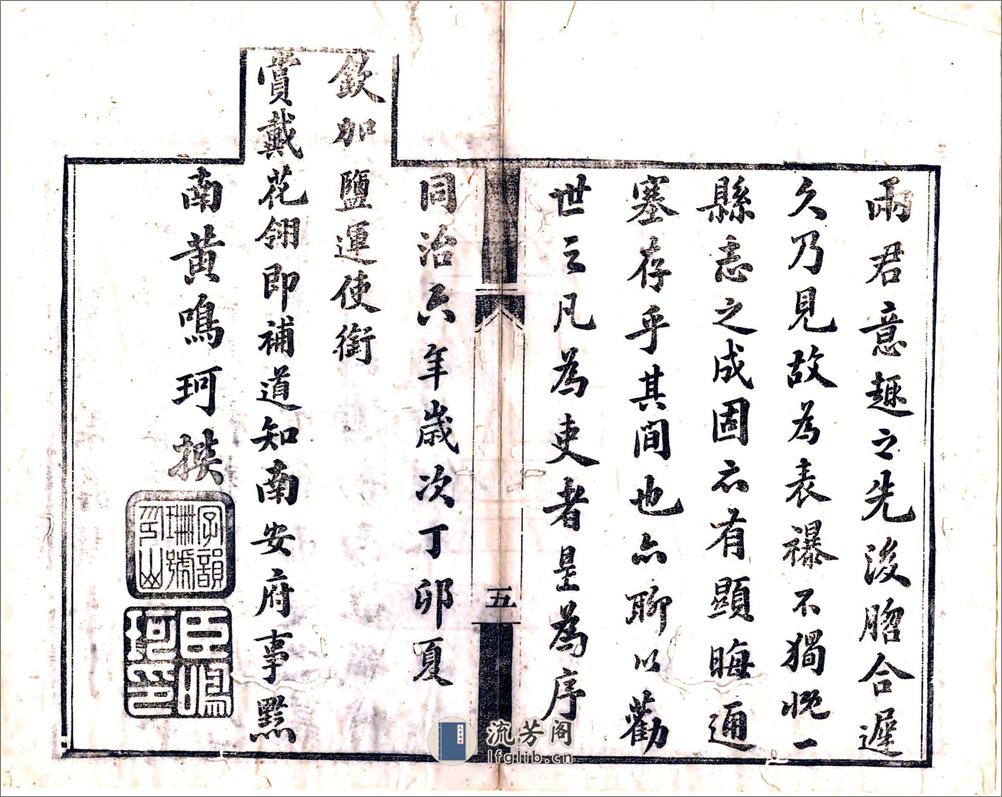 兩君意趣之先後脗合遲
久乃見故為表襮不獨一
縣志之成固亦有顯晦通
塞存乎其間也亦聊以勸
世之凡為吏者是為序
五
同治六年歲次丁卯夏
欽加鹽運使銜
賞戴花翎即補道知南安府事黟
南黃鳴珂撰
字韻珊號山
臣鳴珂印
流芳阁
lfglib.cn